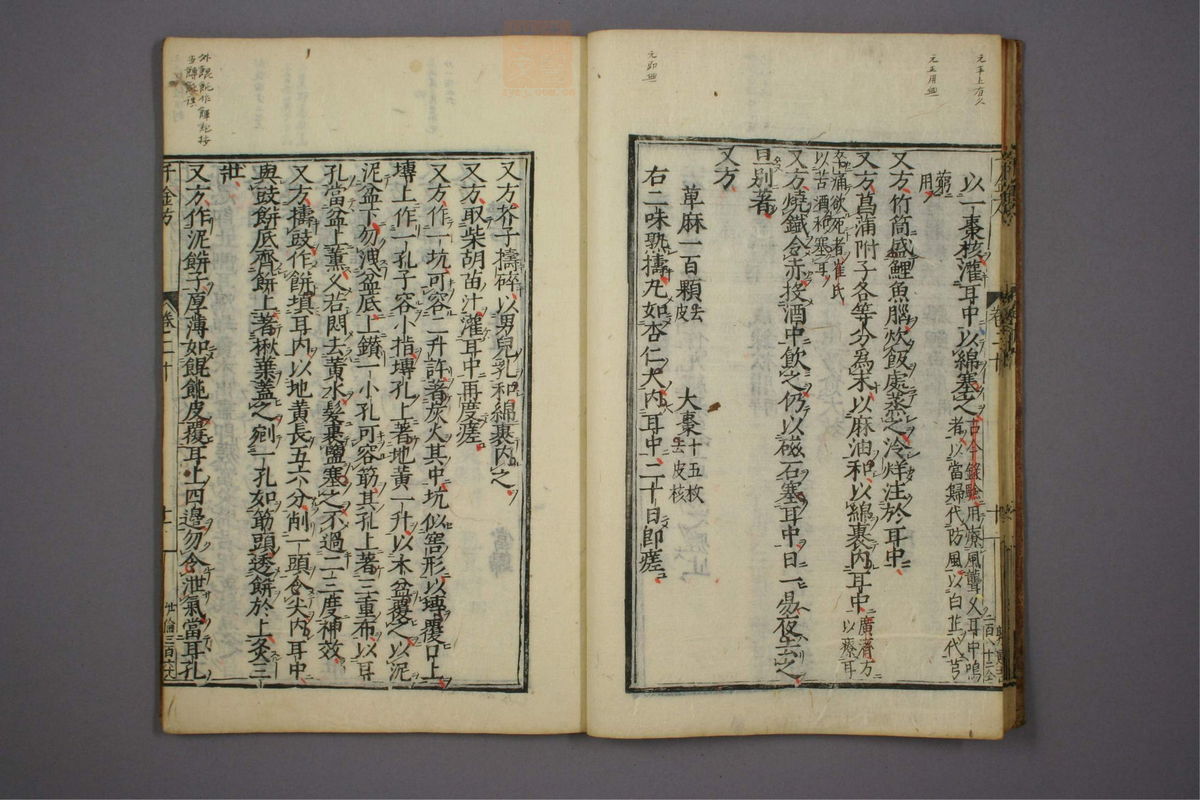 以一棗核灌耳中以綿塞之古今錄驗用療風聾又耳中鳴
者以當歸代防風以白芷代芎
窮用
又方竹筒盛鯉魚腦炊飯處蒸之冷烊注於耳中
又方菖蒲附子各等分為末以麻油和以綿裹內耳中廣濟方
以療耳
卒痛欲死者崔氏
以苦酒和塞耳
又方燒鐵令赤投酒中飲之仍以磁石塞耳中日一易夜去之
旦別著
又方
草麻一百顆去皮 大棗十五枚去皮核
右二味熟擣丸如杏仁大內耳中二十日即瘥
又方芥子擣碎以男兒乳和綿裹內之
又方取柴胡苗汁灌耳中再度瘥
又方作一坑可容二升許著炭火其中坑似窖形以塼覆口上
塼上作一孔子容小指塼孔上著地黃一升以木盆覆之以泥
泥盆下勿洩盆底上鑽一小孔可容筯其孔上著三重布以耳
孔當盆上熏久若悶去黃水髮裹鹽塞之不過二三度神效
又方擣豉作餅填耳內以地黃長五六分削一頭令尖內耳中
與豉餅底齊餅上著楸葉蓋之剜一孔如筯頭透餅於上灸三
壯
又方作泥餅子厚薄如餛飩皮覆耳上四邊勿令泄氣當耳孔
千金方
卷二十